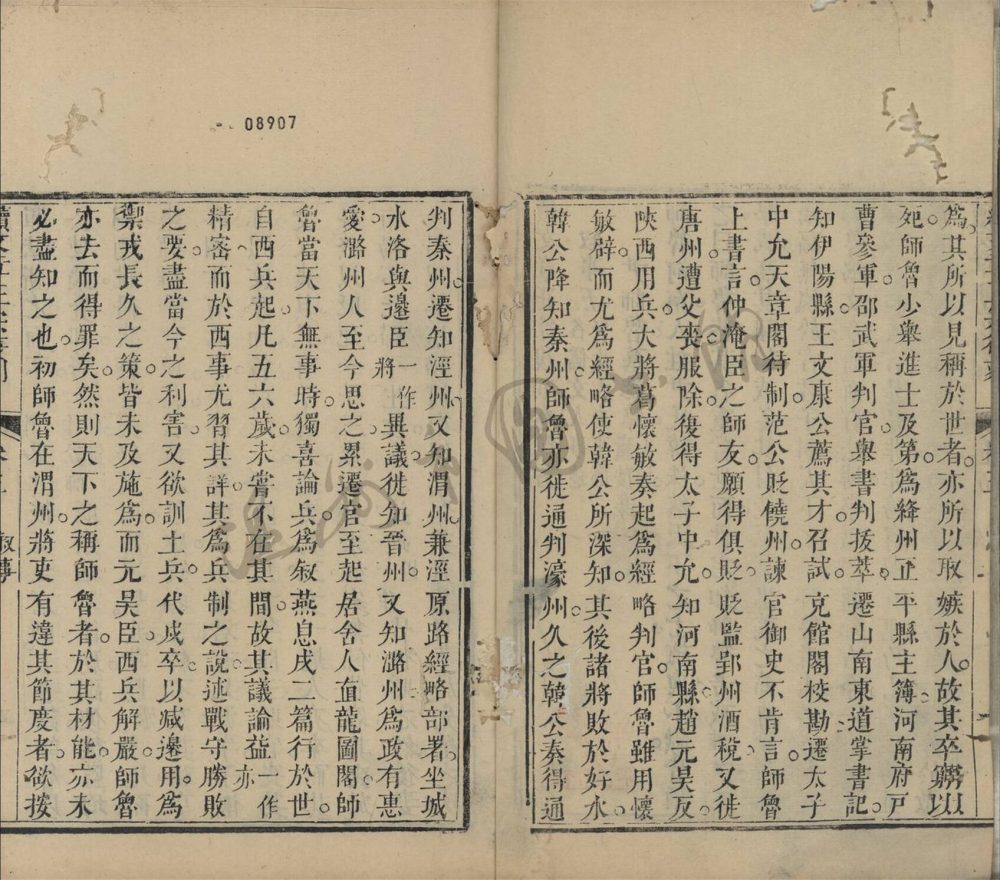 為其所以見稱於世者亦所以取嫉於人故其卒窮以
死師魯少舉進士及第為絳州正平縣主簿河南府戶
曹參軍邵武軍判官舉書判拔萃遷山南東道掌書記
知伊陽縣王文康公薦其才召試充館閣校勘遷太子
中允天章閣待制范公貶饒州諫官御史不肯言師魯
上書言仲淹臣之師友願得俱貶貶監郢州酒稅又徙
唐州遭父喪服除復得太子中允知河南縣趙元昊反
陝西用兵大將葛懷敏奏起為經略判官師魯雖用懷
敏辟而尤為經略使韓公所深知其後諸將敗於好水
韓公降知秦州師魯亦徙通判濠州久之韓公奏得通
08907
判秦州遷知涇州又知渭州兼涇原路經略部署坐城
水洛與邊臣一作將異議徙知晉州又知潞州為政有惠
愛潞州人至今思之累遷官至起居舍人直龍圖閣師
魯當天下無事時獨喜論兵為敘燕息戍二篇行於世
自西兵起凡五六歲未嘗不在其間故其議論益一作亦
精密而於西事尤習其詳其為兵制之說述戰守勝敗
之要盡當今之利害又欲訓土兵代戍卒以減邊用為
禦戎長久之策皆未及施為而元昊臣西兵解嚴師魯
亦去而得罪矣然則天下之稱師魯者於其材能亦未
必盡知之也初師魯在渭州將吏有違其節度者欲按